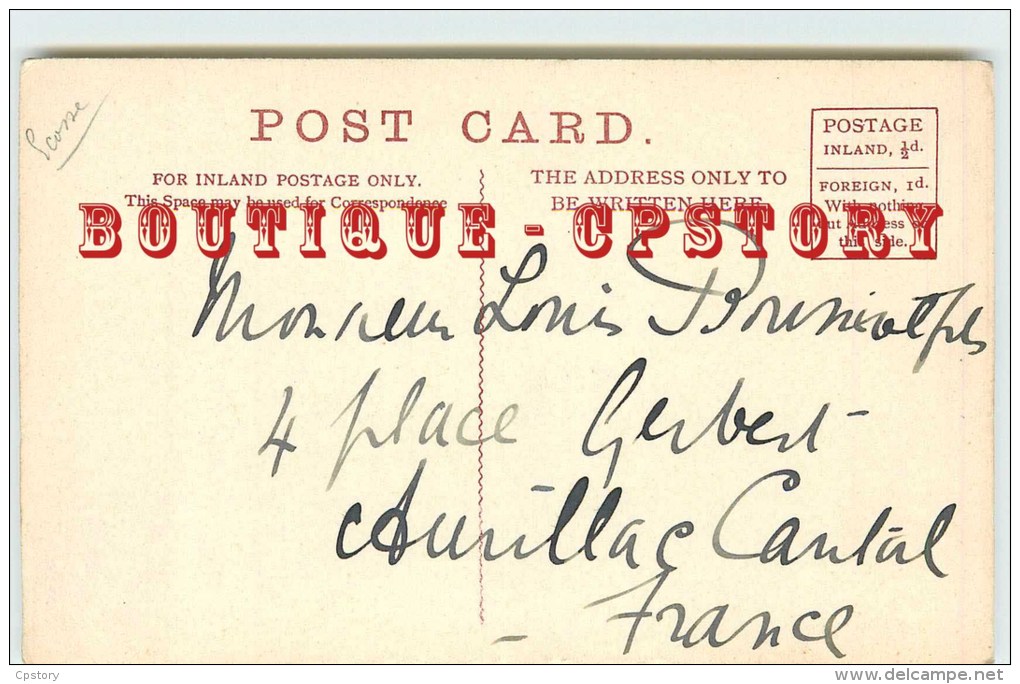 Ecosse
POST CARD.
FOR INLAND POSTAGE ONLY.
This Space may be used for Correspondence
THE ADDRESS ONLY TO
BE WRITTEN HERE
POSTAGE
INLAND, ½d.
FOREIGN, 1d.
With nothing
but Address
this side.
BOUTIQUE - CPSTORY
Monsieur Louis
4 place Gerbert
Aurillac Cantal
France
Cpstory
www.delcampe.net